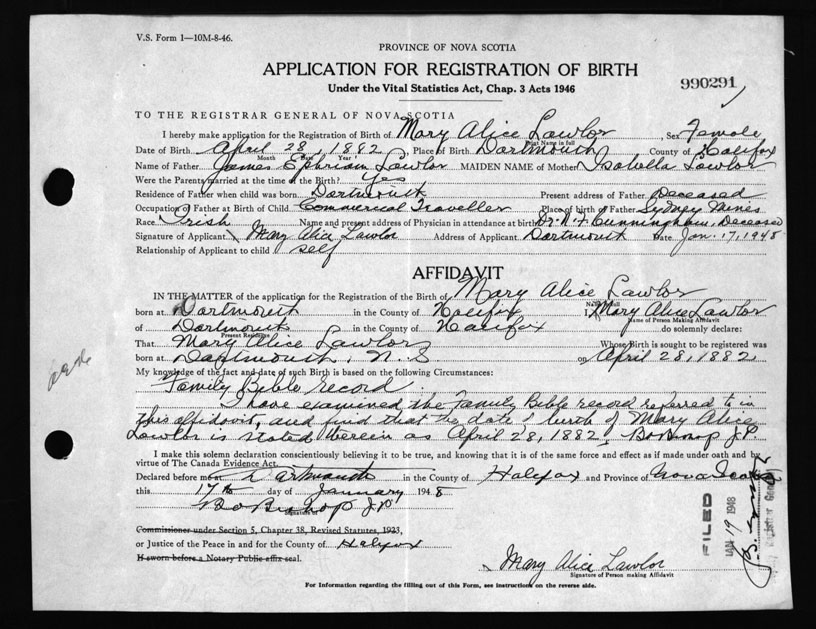 V.S. Form 1—10M-8-46.
PROVINCE OF NOVA SCOTIA
APPLICATION FOR REGISTRATION OF BIRTH
990291
Under the Vital Statistics Act, Chap. 3 Acts 1946
TO THE REGISTRAR GENERAL OF NOVA SCOTIA
I hereby make application for the Registration of Birth of Mary Alice Lawlor, Sex Female
Print Name in full
Date of Birth April 28, 1882 Place of Birth Dartmouth County of Halifax
Month Date Year
Name of Father James Ephriam Lawlor MAIDEN NAME of Mother Isabella Lawlor
Were the Parents married at the time of the Birth? Yes
Residence of Father when child was born Dartmouth Present address of Father Deceased
Occupation of Father at Birth of Child Commercial Traveller Place of birth of Father Sydney Mines
Race Irish Name and present address of Physician in attendance at birth Dr. Cunningham, Deceased
Signature of Applicant Mary Alice Lawlor Address of Applicant Dartmouth Date Jan. 17, 1948
Relationship of Applicant to child self
AFFIDAVIT
IN THE MATTER of the application for the Registration of the Birth of Mary Alice Lawlor
Name in full
born at Dartmouth in the County of Halifax I, Mary Alice Lawlor
Name of Person Making Affidavit
of Dartmouth in the County of Halifax do solemnly declare:
Present Residence
That Mary Alice Lawlor Whose Birth is sought to be registered was
born at Dartmouth, N.S on April 28, 1882
My knowledge of the fact and date of such Birth is based on the following Circumstances:
Family Bible record.
I have examined the Family Bible record referred to in
this affidavit, and find that the date birth of Mary Alice
Lawlor is stated therein as April 28, 1882. Bo Bishop J.P.
I make this solemn declaration conscientiously believing it to be true, and knowing that it is of the same force and effect as if made under oath and by
virtue of The Canada Evidence Act.
Declared before me at Dartmouth in the County of Halifax and Province of Nova Scotia
this 17th day of January 1948
Bo Bishop J.P.
Signature of
Commissioner under Section 5, Chapter 38, Revised Statutes, 1923,
or Justice of the Peace in and for the County of Halifax
If sworn before a Notary Public affix seal.
Mary Alice Lawlor
Signature of Person making Affidavit
FILED
JAN 19 1948
Registrar General
For Information regarding the filling out of this Form, see instructions on the reverse side.